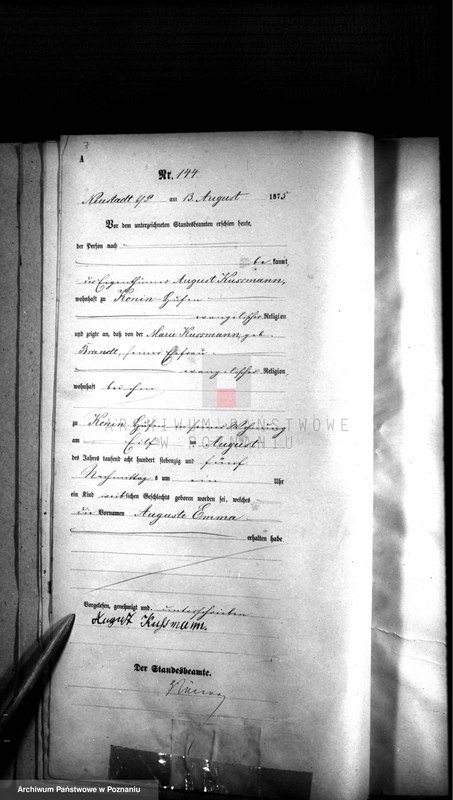 A
Nr. 144
Neustadt b/P am 13. August 1875
Vor dem unterzeichneten Standesbeamten erschien heute,
der Person nach
be kannt,
der Eigenthümer August Kussmann,
wohnhaft zu Konin Hufen
evangelischer Religion
und zeigte an, daß von der Marie Kussmann, geb.
Brandt, seiner Ehefrau
evangelischer Religion
wohnhaft bei ihm
ARCHIWUM PAŃSTWOWE
W POZNANIU
zu Konin Hufen in seiner Wohnung
am Eilf August
des Jahres tausend acht hundert siebenzig und fünf
Nachmittags um ein Uhr
ein Kind weiblichen Geschlechts geboren worden sei, welches
die Vornamen Auguste Emma
erhalten habe
Vorgelesen, genehmigt und unterschrieben
August Kußmann.
Der Standesbeamte.
Archiwum Państwowe w Poznaniu